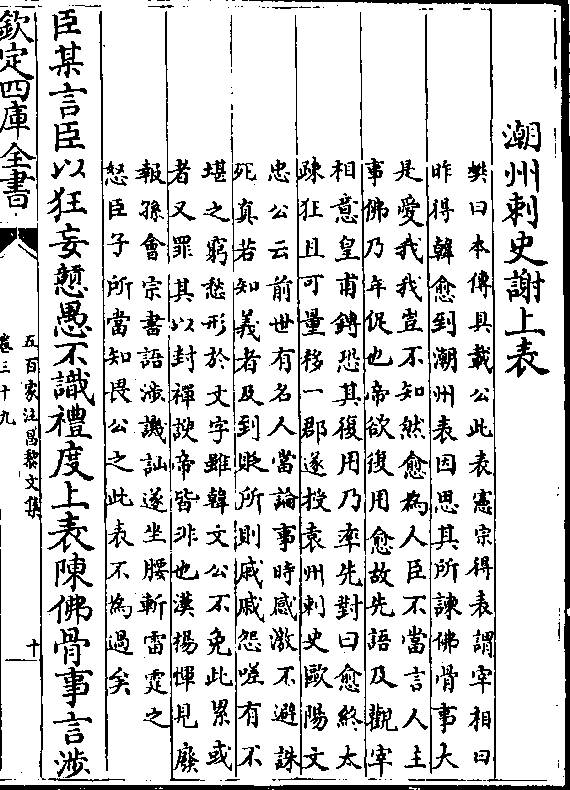 潮州刺史謝上表
樊曰本傳具載公此表憲宗得表謂宰相曰
昨得韓愈到潮州表因思其所諫佛骨事大
是愛我我豈不知然愈為人臣不當言人主
事佛乃年促也帝欲復用愈故先語及觀宰
相意皇甫鏄恐其復用乃率先對曰愈終太
疎狂且可量移一郡遂授袁州刺史歐陽文
忠公云前世有名人當論事時感激不避誅
死真若知義者及到貶所則戚戚怨嗟有不
堪之窮愁形於文字雖韓文公不免此累或
者又罪其以封禪諛帝皆非也漢楊惲見廢
報孫會宗書語涉譏訕遂坐腰斬雷霆之
怒臣子所當知畏公之此表不為過矣
臣某言臣以狂妄戇愚不識禮度上表陳佛骨事言涉
欽定四庫全書
五百家注昌黎文集
卷三十九
十